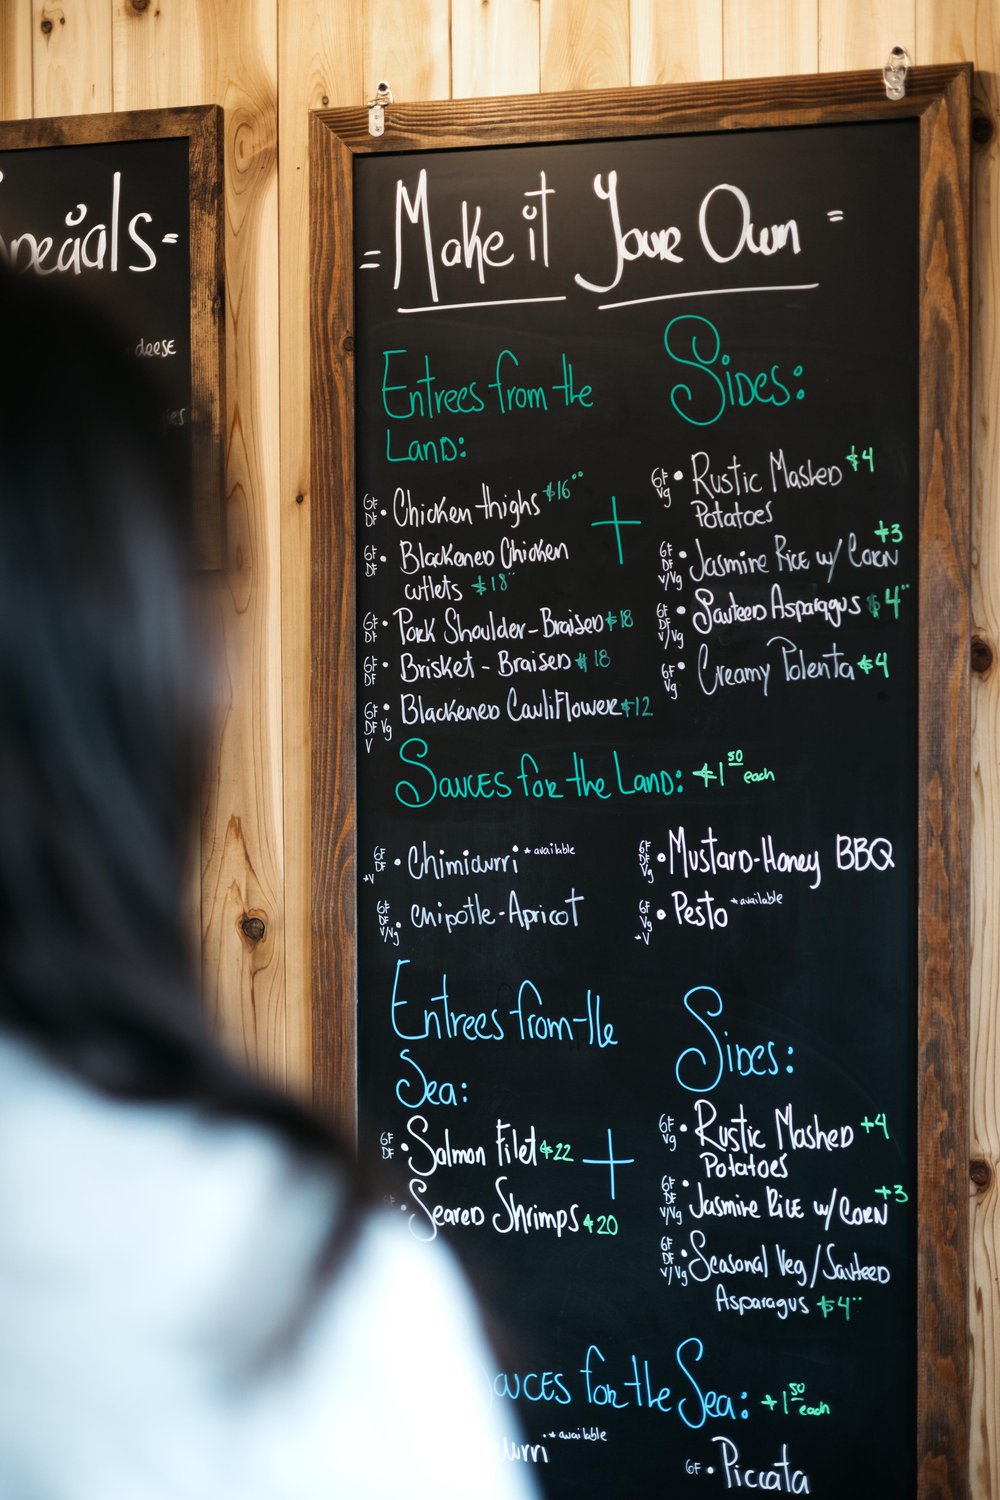 = Make it Your Own =
Entrees from the
Land:
GF DF • Chicken thighs $16
GF DF • Blackened Chicken
cutlets $18
GF DF • Pork Shoulder - Braised $18
GF DF • Brisket - Braised $18
GF DF Vg V • Blackened Cauliflower $12
+
Sides:
GF Vg • Rustic Mashed $4
Potatoes
GF DF V/Vg • Jasmine Rice w/ Corn $3
GF DF V/Vg • Sauteed Asparagus $4
GF Vg • Creamy Polenta $4
Sauces for the Land: $1.50 each
GF DF *V • Chimicurri *available
GF DF V/Vg • Chipotle-Apricot
GF DF Vg • Mustard-Honey BBQ
GF Vg *V • Pesto *available
Entrees from the
Sea:
GF DF • Salmon Filet $22
Seared Shrimps $20
+
Sides:
GF Vg • Rustic Mashed $4
Potatoes
GF DF V/Vg • Jasmine Rice w/ Corn $3
GF DF V/Vg • Seasonal Veg/Sauteed
Asparagus $4
for the Sea: +1.50 each
*available
GF • Piccata